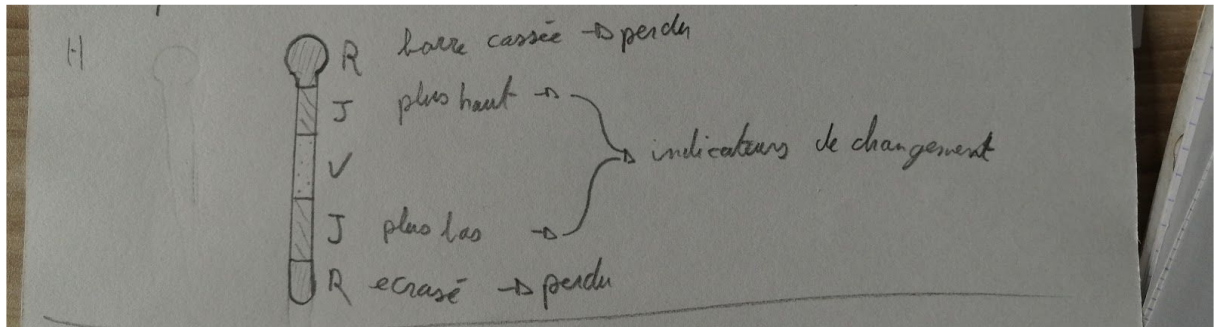 H
R barre cassée → perdu
J plus haut →
→ indicateurs de changement
V
J plus bas →
R ecrasé → perdu